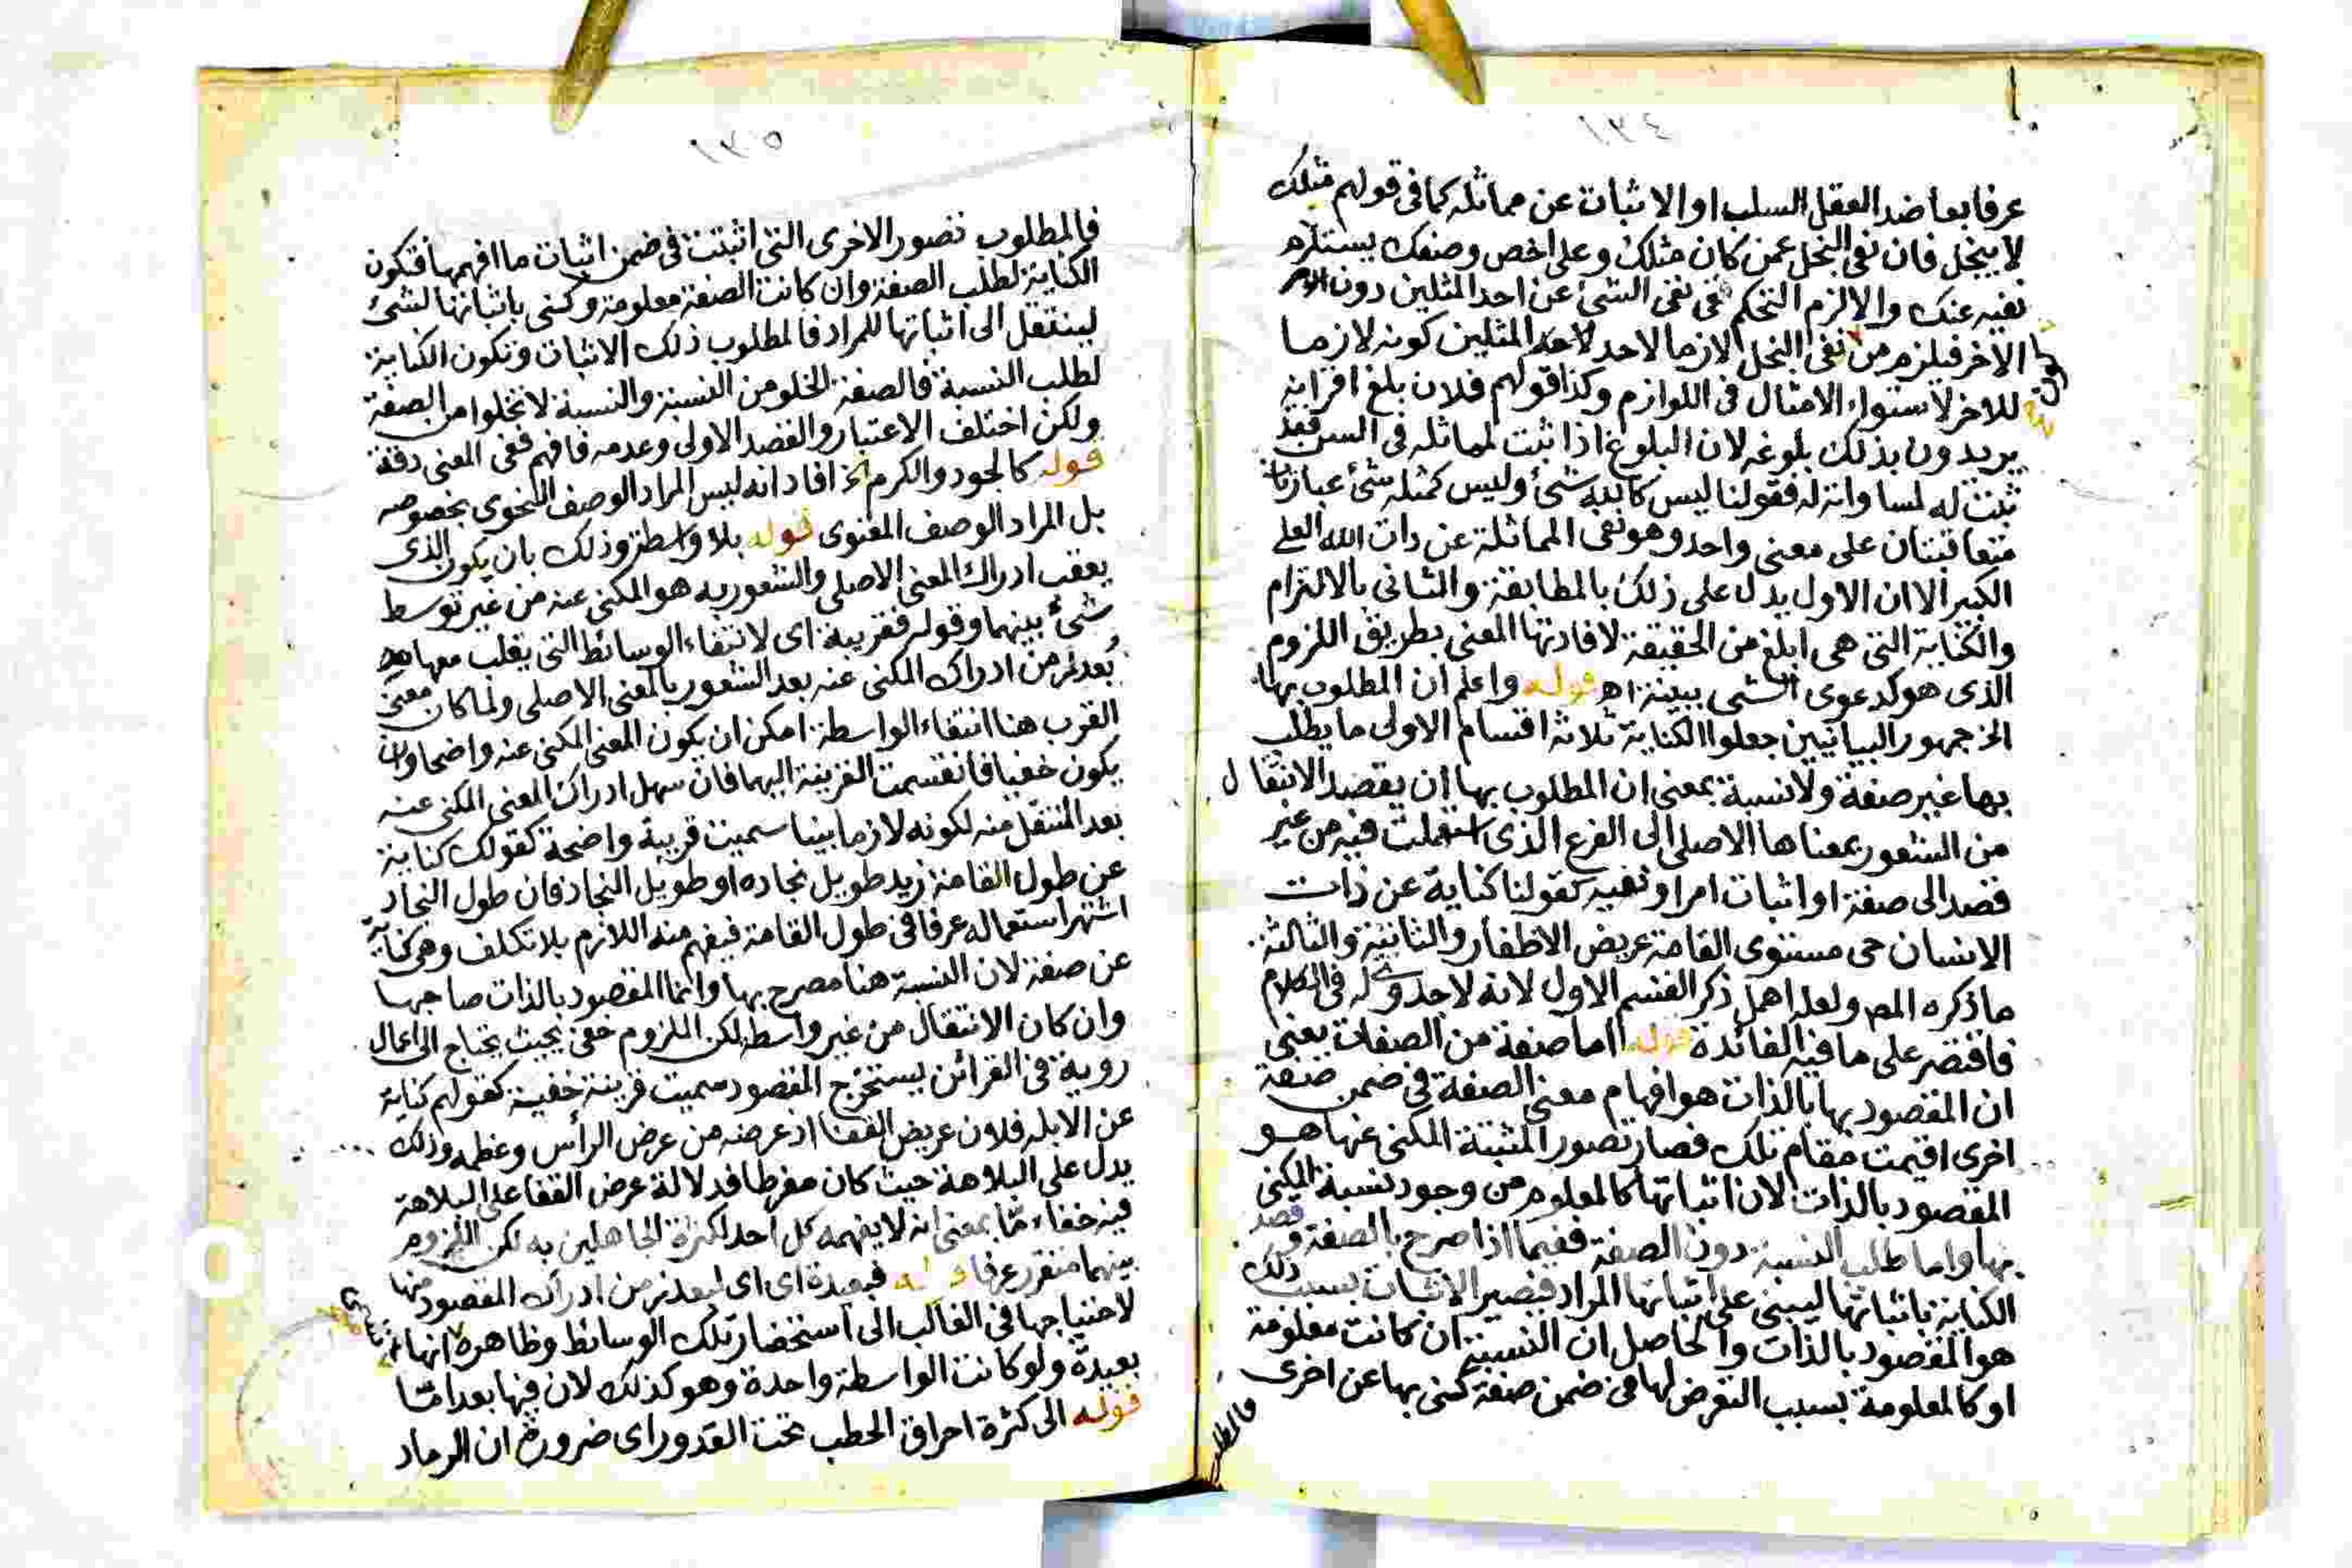 عرفا بعاضد العقل السلب او الاثبات عن مماثله كما فى قولهم مثلك
لا يبخل فان نفى البخل عمن كان مثلك وعلى اخص وصفك يستلزم
نفيه عنك والا لزم التحكم فى نفى الشئ عن احد المثلين دون
الاخر فيلزم من نفى البخل لازما لاحد المثلين كونه لازما
للاخر لاستواء الامثال فى اللوازم وكذا قولهم فلان بلغ اقرانه
يريدون بذلك بلوغه لان البلوغ اذا ثبت لمماثله فى السن فقد
ثبت له لمساواته له فقولنا ليس كالله شئ وليس كمثله شئ عبارتان
متعاقبتان على معنى واحد وهو نفى المماثلة عن ذات الله العلى
الكبير الا ان الاول يدل على ذلك بالمطابقة والثانى بالالتزام
والكناية التى هى ابلغ من الحقيقة لافادتها المعنى بطريق اللزوم
الذى هو كدعوى الشى ببينة اه قوله واعلم ان المطلوب بها
الخ جمهور البيانيين جعلوا الكناية ثلاثة اقسام الاولى ما يطلب
بها غير صفة ولا نسبة بمعنى ان المطلوب بها ان يقصد الانتقال
من الشعور بمعناها الاصلى الى الفرع الذى استعملت فيه من غير
قصد الى صفة او اثبات امر او نفيه كقولنا كناية عن ذات
الانسان حى مستوى القامة عريض الاظفار والثانية والثالثة
ما ذكره المص ولعله اهمل ذكر القسم الاول لانه لا جدوى له فى الكلام
فاقتصر على ما فيه الفائدة قوله اما صفة من الصفات يعنى
ان المقصود بها بالذات هو افهام معنى الصفة فى ضمن صفة
اخرى اقيمت مقام تلك فصار تصور المثبتة المكنى عنها هو
المقصود بالذات لان اثباتها كالمعلوم من وجود نسبة المكنى
بها واما طلب النسبة دون الصفة ففيما اذا صرح بالصفة وقصد
الكناية باثباتها ليبنى على اثباتها المراد فيصير الاثبات بسبب ذلك
هو المقصود بالذات والحاصل ان النسبة ان كانت معلومة
او كالمعلومة بسبب التعرض لها فى ضمن صفة كنى بها عن اخرى
فالمطلوب
فالمطلوب تصور الاخرى التى اثبتت فى ضمن اثبات ما افهمها فتكون
الكناية لطلب الصفة وان كانت الصفة معلومة وكنى باثباتها لشئ
لينتقل الى اثباتها للمراد فالمطلوب ذلك الاثبات وتكون الكناية
لطلب النسبة فالصفة لا تخلو من النسبة والنسبة لا تخلوا من الصفة
ولكن اختلف الاعتبار والقصد الاولى وعدمه فافهم ففى المعنى دقة
قوله كالجود والكرم الخ افاد انه ليس المراد الوصف النحوى بخصوصه
بل المراد الوصف المعنوى قوله بلا واسطة وذلك بان يكون الذى
يعقب ادراك المعنى الاصلى والشعور به هو المكنى عنه من غير توسط
شئ بينهما وقوله فقريبة اى لانتفاء الوسائط التى يغلب معها
بُعد زمن ادراك المكنى عنه بعد الشعور بالمعنى الاصلى ولما كان معنى
القرب هنا انتفاء الواسطة امكن ان يكون المعنى المكنى عنه واضحا وان
يكون خفيا فانقسمت القرينة اليهما فان سهل ادراك المعنى المكنى عنه
بعد المنتقل منه لكونه لازما بينا سميت قريبة واضحة كقولك كناية
عن طول القامة زيد طويل نجاده او طويل النجاد فان طول النجاد
اشتهر استعماله عرفا فى طول القامة فيفهم منه اللازم بلا تكلف وهى كناية
عن صفة لان النسبة هنا مصرح بها وانما المقصود بالذات صاحبها
وان كان الانتقال من غير واسطة لكن اللزوم خفى بحيث يحتاج الى اعمال
روية فى القرائن يستخرج المقصود سميت قرينة خفية كقولهم كناية
عن الابله فلان عريض القفا اذ عرضه من عرض الرأس وعظمه وذلك
يدل على البلاهة حيث كان مفرطا فدلالة عرض القفا على البلاهة
فيه خفاء مّا بمعنى انه لا يفهمه كل احد لكثرة الجاهلين به لكن اللزوم
بينهما متقرر عرفا قوله فبعيدة اى اى لبعد زمن ادراك المقصود منها
لاحتياجها فى الغالب الى استحضار تلك الوسائط وظاهره انها
بعيدة ولو كانت الواسطة واحدة وهو كذلك لان فيها بعدا مّا
قوله الى كثرة احراق الحطب تحت القدور اى ضرورة ان الرماد